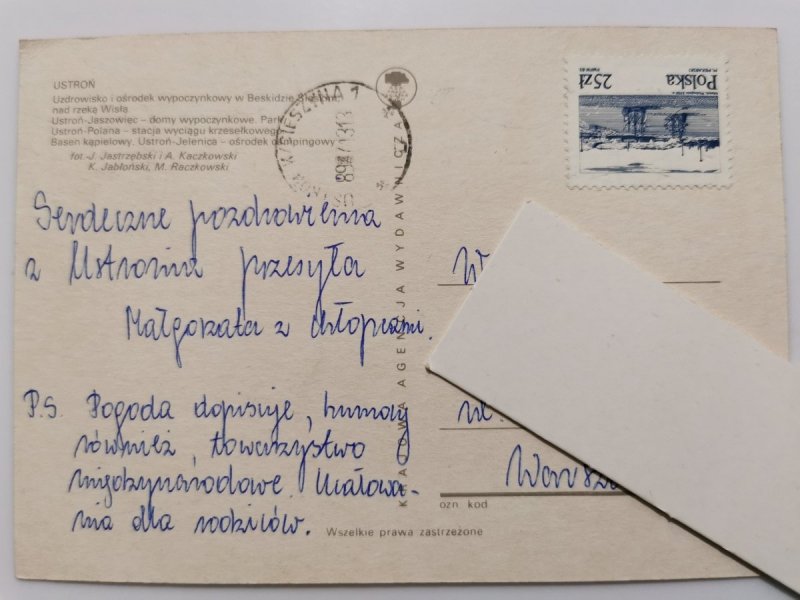 USTROŃ
Uzdrowisko i ośrodek wypoczynkowy w Beskidzie
nad rzeką Wisłą
Ustroń-Jaszowiec – domy wypoczynkowe. Park
Ustroń-Polana – stacja wyciągu krzesełkowego
Basen kąpielowy. Ustroń-Jelenica – ośrodek campingowy
fot. J. Jastrzębski i A. Kaczkowski
K. Jabłoński, M. Raczkowski
Serdeczne pozdrowienia
z Ustronia przesyła
Małgorzata z chłopcami.
P.S. Pogoda dopisuje, humory
również, towarzystwo
międzynarodowe. Ucałowa-
nia dla rodziców.
KRAJOWA AGENCJA WYDAWNICZA
25zł
Polska
W
ul.
Warsza
ozn. kod
Wszelkie prawa zastrzeżone